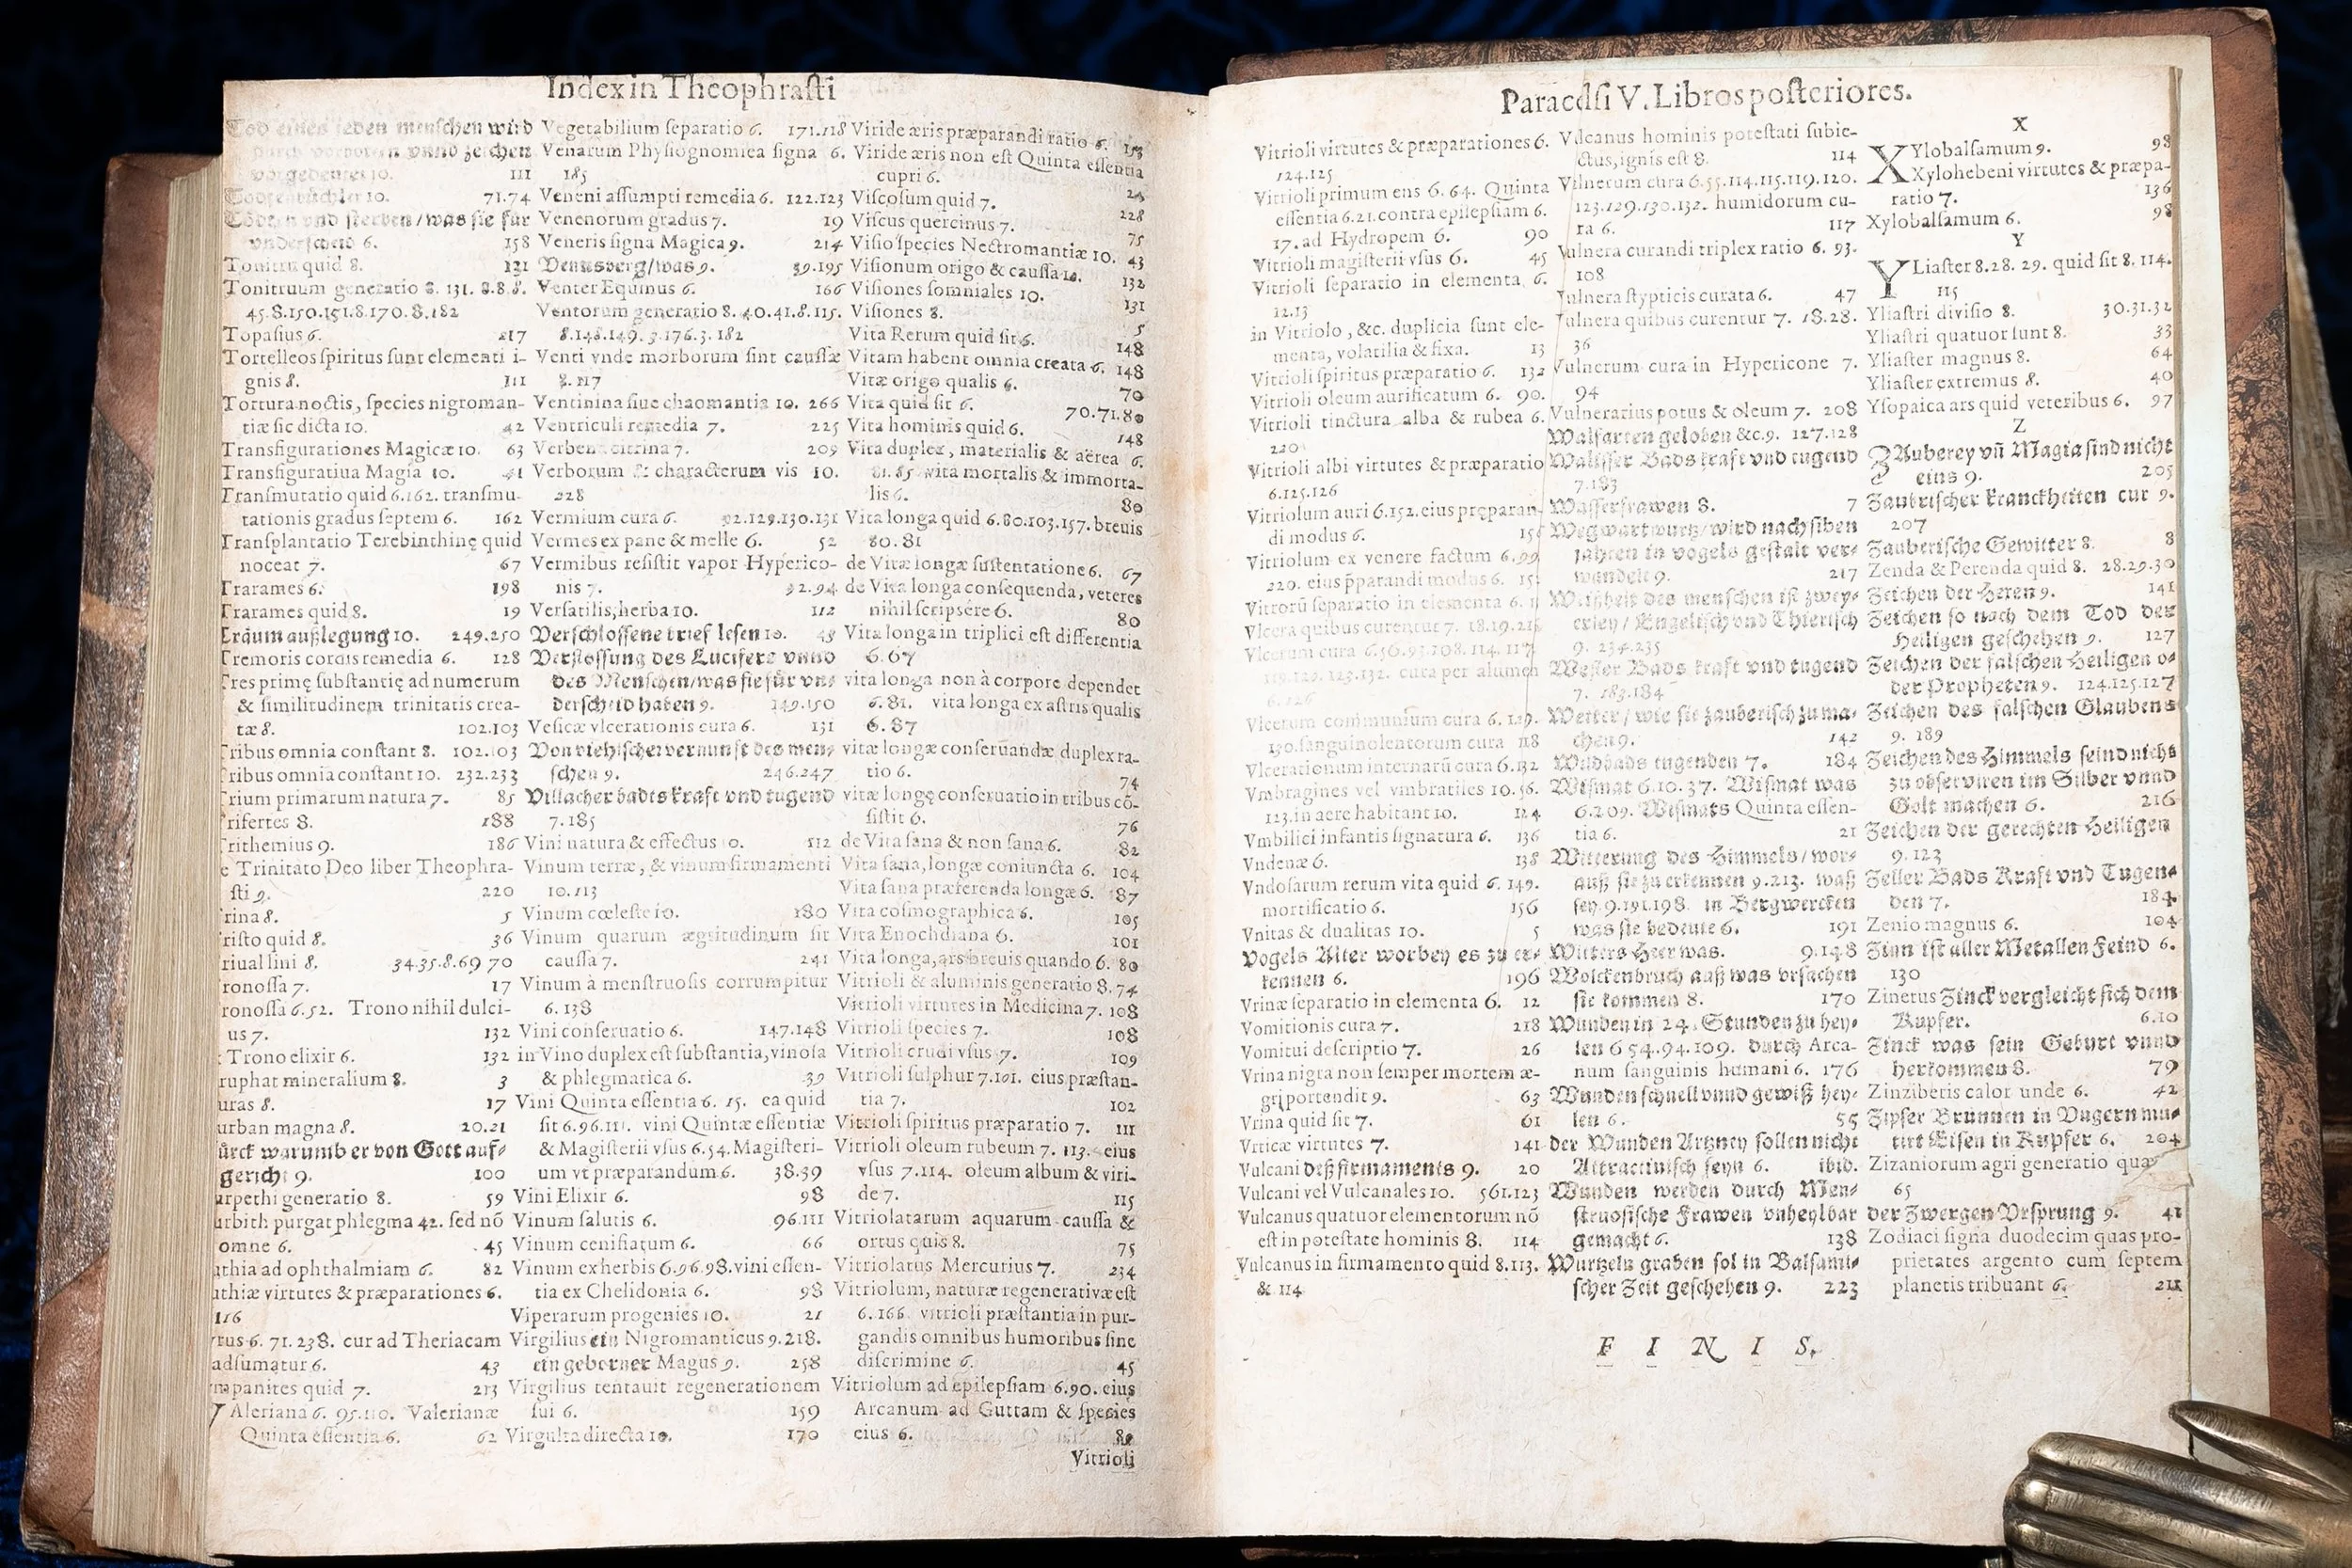 Index in Theophraſti
Tod eines jeden menſchen wird
durch vorbotten vnnd zeichen
vorgedeutet 10. 111
71.74
Tödten vnd ſterben / was sie für
vnderſcheid 6. 158
Tonitru quid 8. 121
Tonitruum generatio 8. 131. 8.8.8.
45.8.150.151.8.170.8.182
Topaſius 6. 217
Tortelleos ſpiritus ſunt elementi i-
gnis 8. 111
Tortura noctis, ſpecies nigroman-
tiæ ſic dicta 10. 42
Transfigurationes Magicæ 10. 63
Transfiguratiua Magia 10. 41
Tranſmutatio quid 6.162. tranſmu-
tationis gradus ſeptem 6. 162
Tranſplantatio Terebinthinę quid
noceat 7. 67
Trarames 6. 198
Trarames quid 8. 19
Traum außlegung 10. 249.250
Tremoris cordis remedia 6. 128
Tres primę ſubſtantię ad numerum
& ſimilitudinem trinitatis crea-
tæ 8. 102.103
ribus omnia conſtant 8. 102.103
ribus omnia conſtant 10. 232.233
rium primarum natura 7. 85
rifertes 8. 188
rithemius 9. 186
e Trinitato Deo liber Theophra-
ſti 9. 220
rina 8. 5
riſto quid 8. 36
riuallini 8. 34.35.8.69 70
ronoſſa 7. 17
ronoſſa 6.52. Trono nihil dulci-
us 7. 132
Trono elixir 6. 132
ruphat mineralium 8. 3
uras 8. 17
urban magna 8. 20.21
ürck warumb er von Gott auf-
gericht 9. 100
urpethi generatio 8. 59
urbith purgat phlegma 42. ſed nõ
omne 6. 45
uthia ad ophthalmiam 6. 82
uthiæ virtutes & præparationes 6.
116
rtus 6. 71.238. cur ad Theriacam
adſumatur 6. 43
mpanites quid 7. 213
Aleriana 6. 95.110. Valerianæ
Quinta eſſentia 6. 62
Vegetabilium ſeparatio 6. 171.118
Venarum Phyſiognomica ſigna 6.
185
Veneni aſſumpti remedia 6. 122.123
Venenorum gradus 7. 19
Veneris ſigna Magica 9. 214
Venusberg / was 9. 39.195
Venter Equinus 6. 166
Ventorum generatio 8. 40.41.8.115.
8.148.149. 3.176.3.182
Venti vnde morborum ſint cauſſæ
8. 117
Ventinina ſiue chaomantia 10. 266
Ventriculi remedia 7. 225
Verbena citrina 7. 209
Verborum & characterum vis 10.
228
Vermium cura 6. 92.129.130.131
Vermes ex pane & melle 6. 52
Vermibus reſiſtit vapor Hyperico-
nis 7. 92.94
Verſatilis, herba 10. 112
Verſchloſſene brief leſen 10. 43
Verſtoſſung des Lucifers vnnd
des Menſchen / was ſie für vn-
derſcheid haben 9. 149.150
Veſicæ vlcerationis cura 6. 131
Von viehiſcher vernunft des men-
ſchen 9. 246.247
Villacher badts kraft vnd tugend
7.185
Vini natura & effectus 10. 112
Vinum terræ, & vinum firmamenti
10.113
Vinum cœleſte 10. 180
Vinum quarum ægritudinum ſit
cauſſa 7. 241
Vinum à menſtruoſis corrumpitur
6.138
Vini conſeruatio 6. 147.148
in Vino duplex eſt ſubſtantia, vinoſa
& phlegmatica 6. 39
Vini Quinta eſſentia 6. 15. ea quid
ſit 6.96.111. vini Quintæ eſſentiæ
& Magiſterii vſus 6.54. Magiſteri-
um vt præparandum 6. 38.39
Vini Elixir 6. 98
Vinum ſalutis 6. 96.111
Vinum cenifiatum 6. 66
Vinum ex herbis 6.96.98. vini eſſen-
tia ex Chelidonia 6. 98
Viperarum progenies 10. 21
Virgilius ein Nigromanticus 9.218.
ein geborner Magus 9. 258
Virgilius tentauit regenerationem
ſui 6. 159
Virgulta directa 10. 170
Viride æris præparandi ratio 6. 153
Viride æris non eſt Quinta eſſentia
cupri 6. 24
Viſcoſum quid 7. 228
Viſcus quercinus 7. 75
Viſio ſpecies Nectromantiæ 10. 43
Viſionum origo & cauſſa 10. 132
Viſiones ſomniales 10. 131
Viſiones 8. 5
Vita Rerum quid ſit 6. 148
Vitam habent omnia creata 6. 148
Vitæ origo qualis 6. 70
Vita quid ſit 6. 70.71.80
Vita hominis quid 6. 148
Vita duplex, materialis & aërea 6.
81.85 vita mortalis & immorta-
lis 6. 80
Vita longa quid 6.80.103.157. breuis
80.81
de Vitæ longæ ſuſtentatione 6. 67
de Vita longa conſequenda, veteres
nihil ſcripſere 6. 80
Vita longa in triplici eſt differentia
6.67
vita longa non à corpore dependet
6.81. vita longa ex aſtris qualis
6.87
vitæ longæ conſeruandæ duplex ra-
tio 6. 74
vitæ longę conſeruatio in tribus cõ-
ſiſtit 6. 76
de Vita ſana & non ſana 6. 82
Vita ſana, longæ coniuncta 6. 104
Vita ſana præferenda longæ 6. 87
Vita coſmographica 6. 105
Vita Enochdiana 6. 101
Vita longa, ars breuis quando 6. 80
Vitrioli & aluminis generatio 8. 74
Vitrioli virtutes in Medicina 7. 108
Vitrioli ſpecies 7. 108
Vitrioli crudi vſus 7. 109
Vitrioli ſulphur 7.101. eius præſtan-
tia 7. 102
Vitrioli ſpiritus præparatio 7. 111
Vitrioli oleum rubeum 7. 113. eius
vſus 7.114. oleum album & viri-
de 7. 115
Vitriolatarum aquarum cauſſa &
ortus quis 8. 75
Vitriolatus Mercurius 7. 234
Vitriolum, naturæ regenerativæ eſt
6.166. vitrioli præſtantia in pur-
gandis omnibus humoribus ſine
diſcrimine 6. 45
Vitriolum ad epilepſiam 6.90. eius
Arcanum ad Guttam & ſpecies
eius 6. 80
Vitrioli
Paracelſi V. Libros poſteriores.
Vitrioli virtutes & præparationes 6.
124.125
Vitrioli primum ens 6. 64. Quinta
eſſentia 6.21. contra epilepſiam 6.
17. ad Hydropem 6. 90
Vitrioli magiſterii vſus 6. 45
Vitrioli ſeparatio in elementa 6.
12.13
in Vitriolo, &c. duplicia ſunt ele-
menta, volatilia & fixa. 13
Vitrioli ſpiritus præparatio 6. 132
Vitrioli oleum aurificatum 6. 90.
Vitrioli tinctura alba & rubea 6.
220
Vitrioli albi virtutes & præparatio
6.125.126
Vitriolum auri 6.152. eius pręparan-
di modus 6.
Vitriolum ex venere factum 6.99.
220. eius p̄parandi modus 6.
Vitriorũ ſeparatio in elementa 6.
Vlcera quibus curentur 7. 18.19.21
Vlcerum cura
cura per alumen
6.126
Vlcerum communium cura 6. 129.
130. ſanguinolentorum cura 118
Vlcerationum internarũ cura 6.132
Vmbragines vel vmbratiles 10.56.
123. in aere habitant 10. 124
Vmbilici infantis ſignatura 6. 136
Vndenæ 6. 138
Vndoſarum rerum vita quid 6. 149.
mortificatio 6. 156
Vnitas & dualitas 10. 5
Vogels Alter worbey es zu er-
kennen 6. 196
Vrinæ ſeparatio in elementa 6. 12
Vomitionis cura 7. 218
Vomitui deſcriptio 7. 26
Vrina nigra non ſemper mortem æ-
gri portendit 9. 63
Vrina quid ſit 7. 61
Vrticæ virtutes 7. 141
Vulcani deß firmaments 9. 20
Vulcani vel Vulcanales 10. 561.123
Vulcanus quatuor elementorum nõ
eſt in poteſtate hominis 8. 114
Vulcanus in firmamento quid 8.113.
& 114
Vulcanus hominis poteſtati ſubie-
ctus, ignis eſt 8. 114
Vulnerum cura 6.55.114.115.119.120.
123.129.130.132. humidorum cu-
ra 6. 117
Vulnera curandi triplex ratio 6. 93.
108
Vulnera ſtypticis curata 6. 47
Vulnera quibus curentur 7. 18.28.
36
Vulnerum cura in Hypericone 7.
94
Vulnerarius potus & oleum 7. 208
Walfarten geloben &c. 9. 127.128
Walliſſer Bads kraft vnd tugend
7.183
Waſſerfrawen 8. 7
Wegwartwurtz / wird nach ſiben
jahren in vogels geſtalt ver-
wandelt 9. 217
Weißheit des menſchen iſt zwey-
erley / Engeliſch vnd Thieriſch
9. 234.235
Weſter Bads kraft vnd tugend
7. 183.184
Wetter / wie ſie zauberiſch zu ma-
chen 9. 142
Wildbads tugenden 7. 184
Wiſmat 6.10.37. Wiſmat was
6.209. Wiſmats Quinta eſſen-
tia 6. 21
Witterung des Himmels / wor-
auß ſie zu erkennen 9.213. waß
ſey 9.191.198. in Bergwercken
was ſie bedeute 6. 191
Witters Heer was. 9.148
Wolckenbruch auß was vrſachen
ſie kommen 8. 170
Wunden in 24. Stunden zu hey-
len 6 54.94.109. durch Arca-
num ſanguinis humani 6. 176
Wunden ſchnell vnnd gewiß hey-
len 6. 55
der Wunden Artzney ſollen nicht
Attractiviſch ſeyn 6. ibid.
Wunden werden durch Men-
ſtruoſiſche Frawen vnheylbar
gemacht 6. 138
Wurtzeln graben ſol in Balſami-
ſcher Zeit geſchehen 9. 223
X
XYlobalſamum 9. 98
Xylohebeni virtutes & præpa-
ratio 7. 136
Xylobalſamum 6. 98
Y
YLiaſter 8.28. 29. quid ſit 8. 114.
115
Yliaſtri diviſio 8. 30.31.32
Yliaſtri quatuor ſunt 8. 33
Yliaſter magnus 8. 64
Yliaſter extremus 8. 40
Yſopaica ars quid veteribus 6. 97
Z
ZAuberey vñ Magia ſind nicht
eins 9. 205
Zaubriſcher kranckheiten cur 9.
207
Zauberiſche Gewitter 8. 8
Zenda & Perenda quid 8. 28.29.30
Zeichen der Heren 9. 141
Zeichen ſo nach dem Tod der
Heiligen geſchehen 9. 127
Zeichen der falſchen Heiligen o-
der Propheten 9. 124.125.127
Zeichen des falſchen Glaubens
9. 189
Zeichen des Himmels ſeind nicht
zu obſerviren im Silber vnnd
Golt machen 6. 216
Zeichen der gerechten Heiligen
9. 123
Zeller Bads Kraft vnd Tugen-
den 7. 184
Zenio magnus 6. 104
Zinn iſt aller Metallen Feind 6.
130
Zinetus Zinck vergleicht ſich dem
Kupfer. 6.10
Zinck was ſein Geburt vnnd
herkommen 8. 79
Zinziberis calor unde 6. 42
Zipſer Brunnen in Vngern mu-
tirt Eiſen in Kupfer 6. 204
Zizaniorum agri generatio quæ
65
der Zwergen Vrſprung 9. 41
Zodiaci ſigna duodecim quas pro-
prietates argento cum ſeptem
planetis tribuant 6. 211
FINIS.